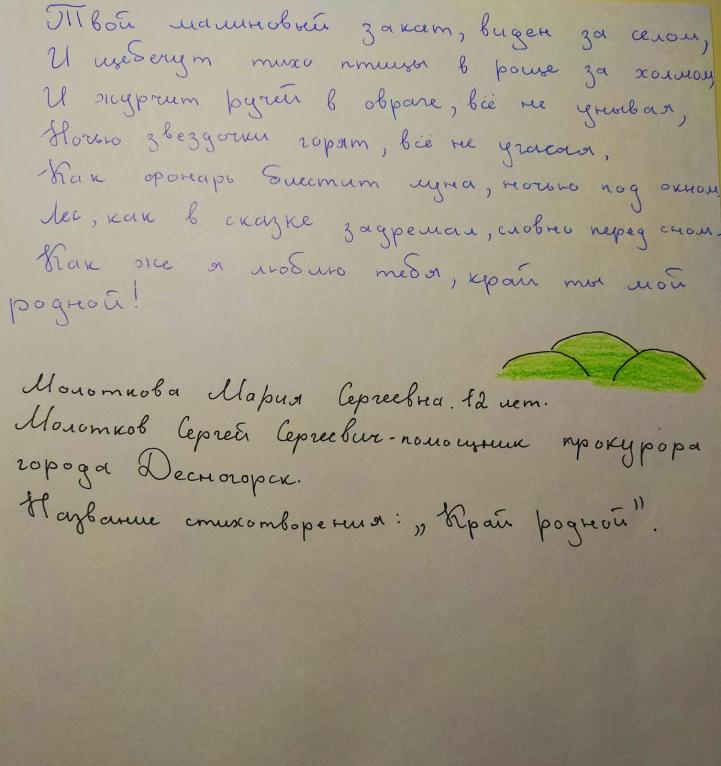 Твой малиновый закат, виден за селом,
И щебечут тихо птицы в роще за холмом,
И журчит ручей в овраге, всё не унывая,
Ночью звездочки горят, всё не угасая,
Как фонарь блестит луна, ночью под окном,
Лес, как в сказке задремал, словно перед сном.
Как же я люблю тебя, край ты мой
родной!
Молоткова Мария Сергеевна. 12 лет.
Молотков Сергей Сергеевич-помощник прокурора
города Десногорск.
Название стихотворения: „Край родной".